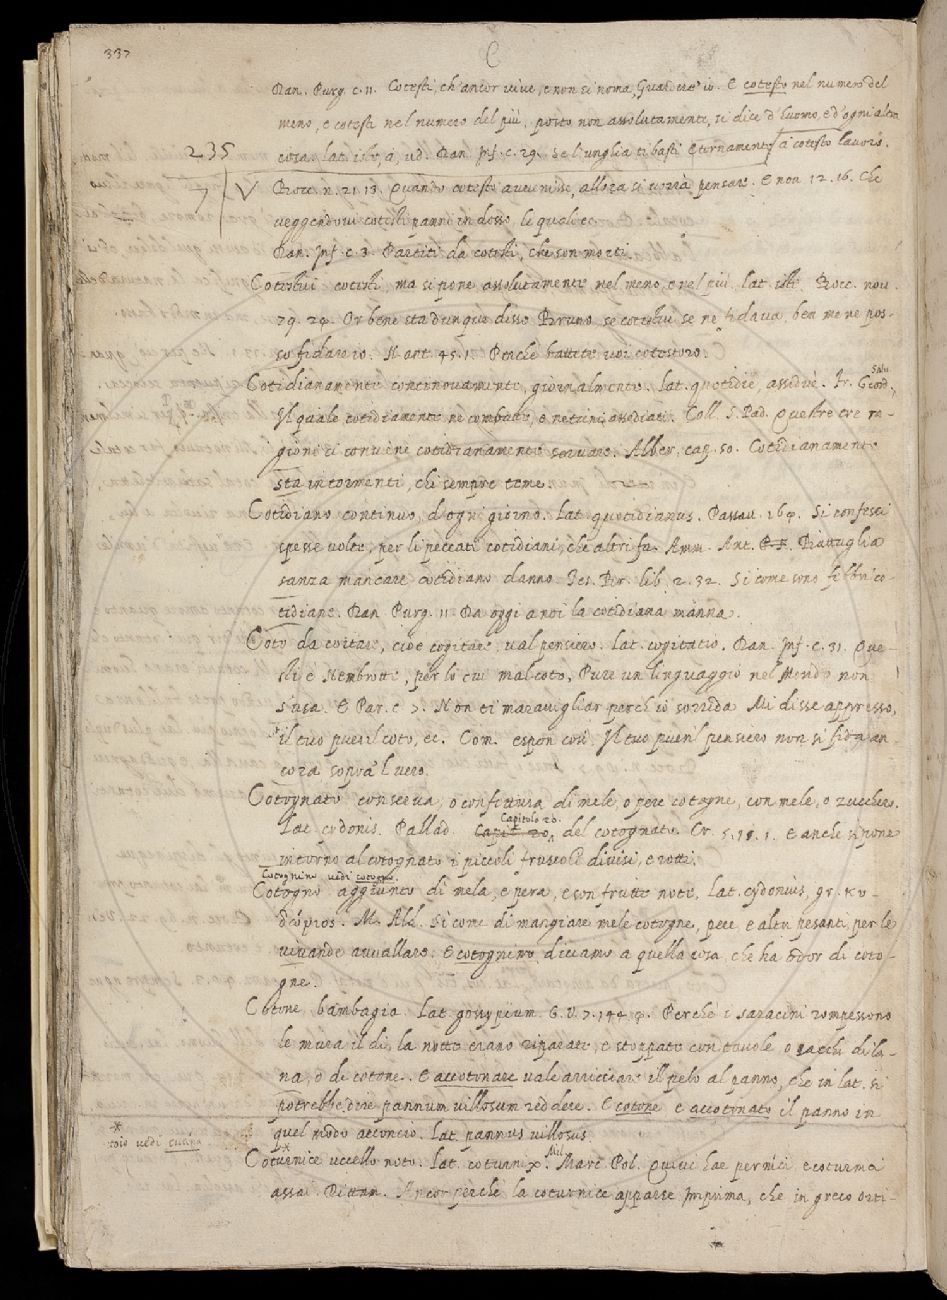 337
C
Dan. Purg. c. 11. Cotesti, ch'ancor vive, e non si noma, Guardere' io. E cotesto nel numero del
meno, e cotesti nel numero del più, posto non assolutamente, si dice d'huomo, e d'ogni altra
235
cosa. lat. iste, a, ud. Dan. Inf. c. 29. Se l'unghia ti basti Eternamente a cotesto lavoro.
7 V Bocc. n. 21. 13. Quando cotesto avvenisse, allora si vorrà pensare. E nov. 12. 16. Che
veggendovi cotesti panni in dosso, le quali ec.
Dan. Inf. c. 3. Partiti da cotesti, che son morti.
Cotestui cotesti, ma si pone assolutamente nel meno, e nel più. lat. iste. Bocc. nov.
79. 29. Or bene sta dunque disse Bruno, se cotestui se ne fidava, ben me ne pos-
so fidare io. N. ant. 45. 1. Perchè battete voi cotestoro.
Cotidianamente continovamente, giornalmente. Lat. quotidie, assidue. Fr. Giord.
Salu.
Il quale cotidiamente ne combatte, e netieni assediati. Coll. S. Pad. Queste tre ra-
gioni ci conviene cotidianamente servare. Alber. cap. 50. Cotidianamente
sta in tormenti, chi sempre teme.
Cotidiano continuo, d'ogni giorno. Lat. quotidianus. Passav. 169. Si confessi
spesse volte, per li peccati cotidiani, che altri fa. Amm. Ant. Battuglia
sanza mancare cotidiano danno. Tes. Br. lib. 2. 32. Si come sono febbri co-
tidiane. Dan. Purg. 11 Da oggi a noi la cotidiana manna.
Coto da coitare, cioè cogitare, val pensiero. Lat. cogitatio. Dan. Inf. c. 31. Que-
sti è Nembrotte, per lo cui mal coto, Pure un linguaggio nel Mondo non
s'usa. E Par. c. 3. Non ti maravigliar perch'io sorrida Mi disse appresso,
il tuo pueril coto, ec. Com. espon così Il tuo pueril pensero non si fida an-
cora sopra 'l vero.
Cotognato conserva, o confettura di mele, o pere cotogne, con mele, o zucchero.
Capitolo 20.
Lat. cydonis. Pallad. Capit. 20, del cotognato. Cr. 5. 18. 1. E anche si pone
intorno al cotognato i piccoli fruscoli divisi, e rotti.
Cotognino vedi cotogno.
Cotogno aggiunto di mela, e pera, e son frutte note. Lat. cydonius, gr. κυ-
δώνιος. M. Ald. Si come di mangiare mele cotogne, pere e altri pesanti per le
vivande avvallare. E cotognino diciamo a quella cosa, che ha odor di coto-
gne.
Cotone bambagia. Lat. gossypium. G. V. 7. 144. 4. Perchè i saracini rompessono
le mura il dì, la notte erano riparate, e stoppate con tavole o sacchi di la-
na, o di cotone. E accotonare vale arricciare il pelo al panno, che in lat. si
potrebbe dire pannum villosum reddere. E cotone e accotonato il panno in
quel modo acconcio. Lat. pannus villosus.
*
coio vedi cucina
Coturnice uccello noto. Lat. coturnix. Mil. Marc. Pol. Quivi hae pernici e coturnici
assai. Dittam. Ancor perchè la coturnice apparse Imprima, che in greco orti-